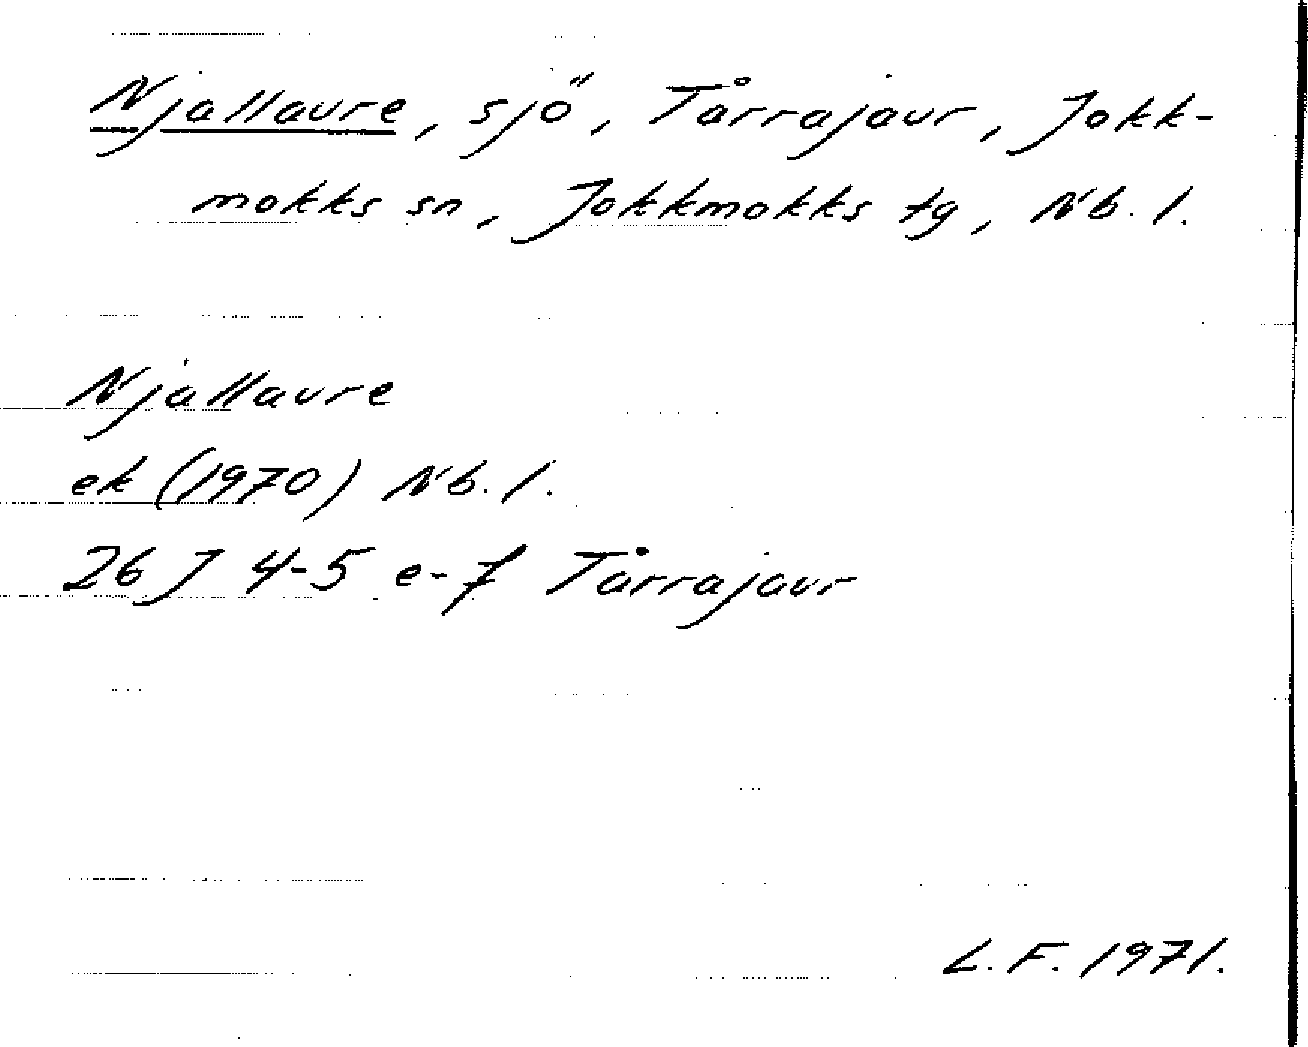 Njallaure, sjö, Tårrajaur, Jokk-
mokks sn, Jokkmokks tg, Nb. l.
Njallaure
ek (1970) Nb. l.
26 J 4-5 e-f Tårrajaur
L. F. 1971.